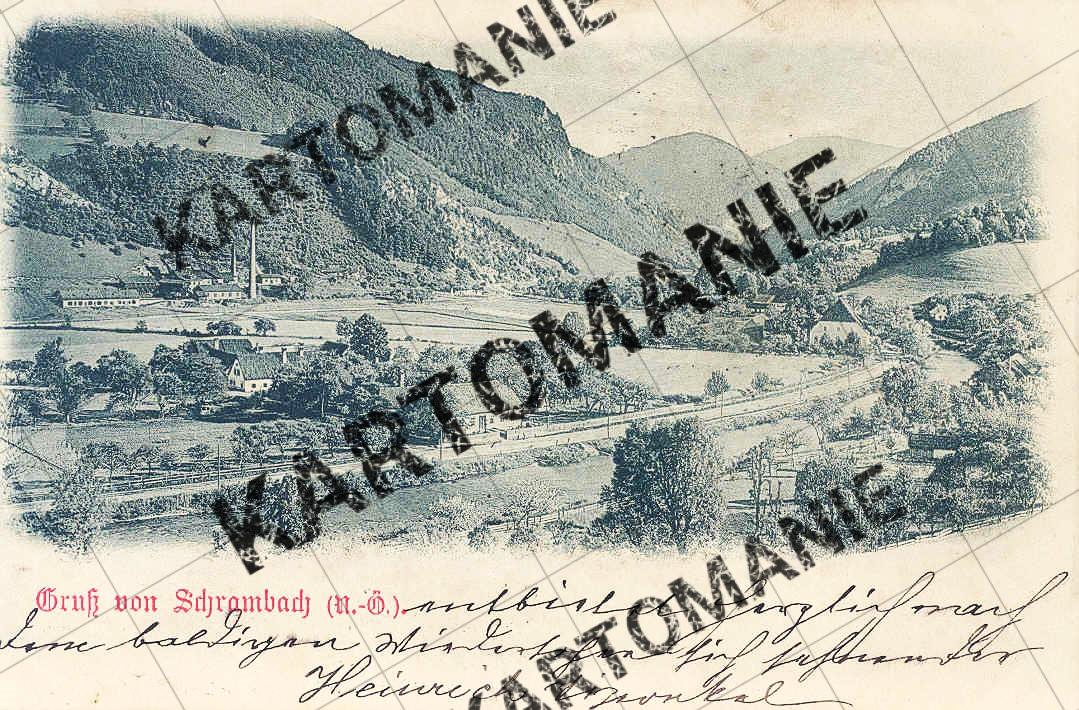 KARTOMANIE
KARTOMANIE
KARTOMANIE
Gruß von Schrambach (N.-Ö.). entbietet herzlich nach
dem baldigen Wiedersehen sich sehnender
Heinrich